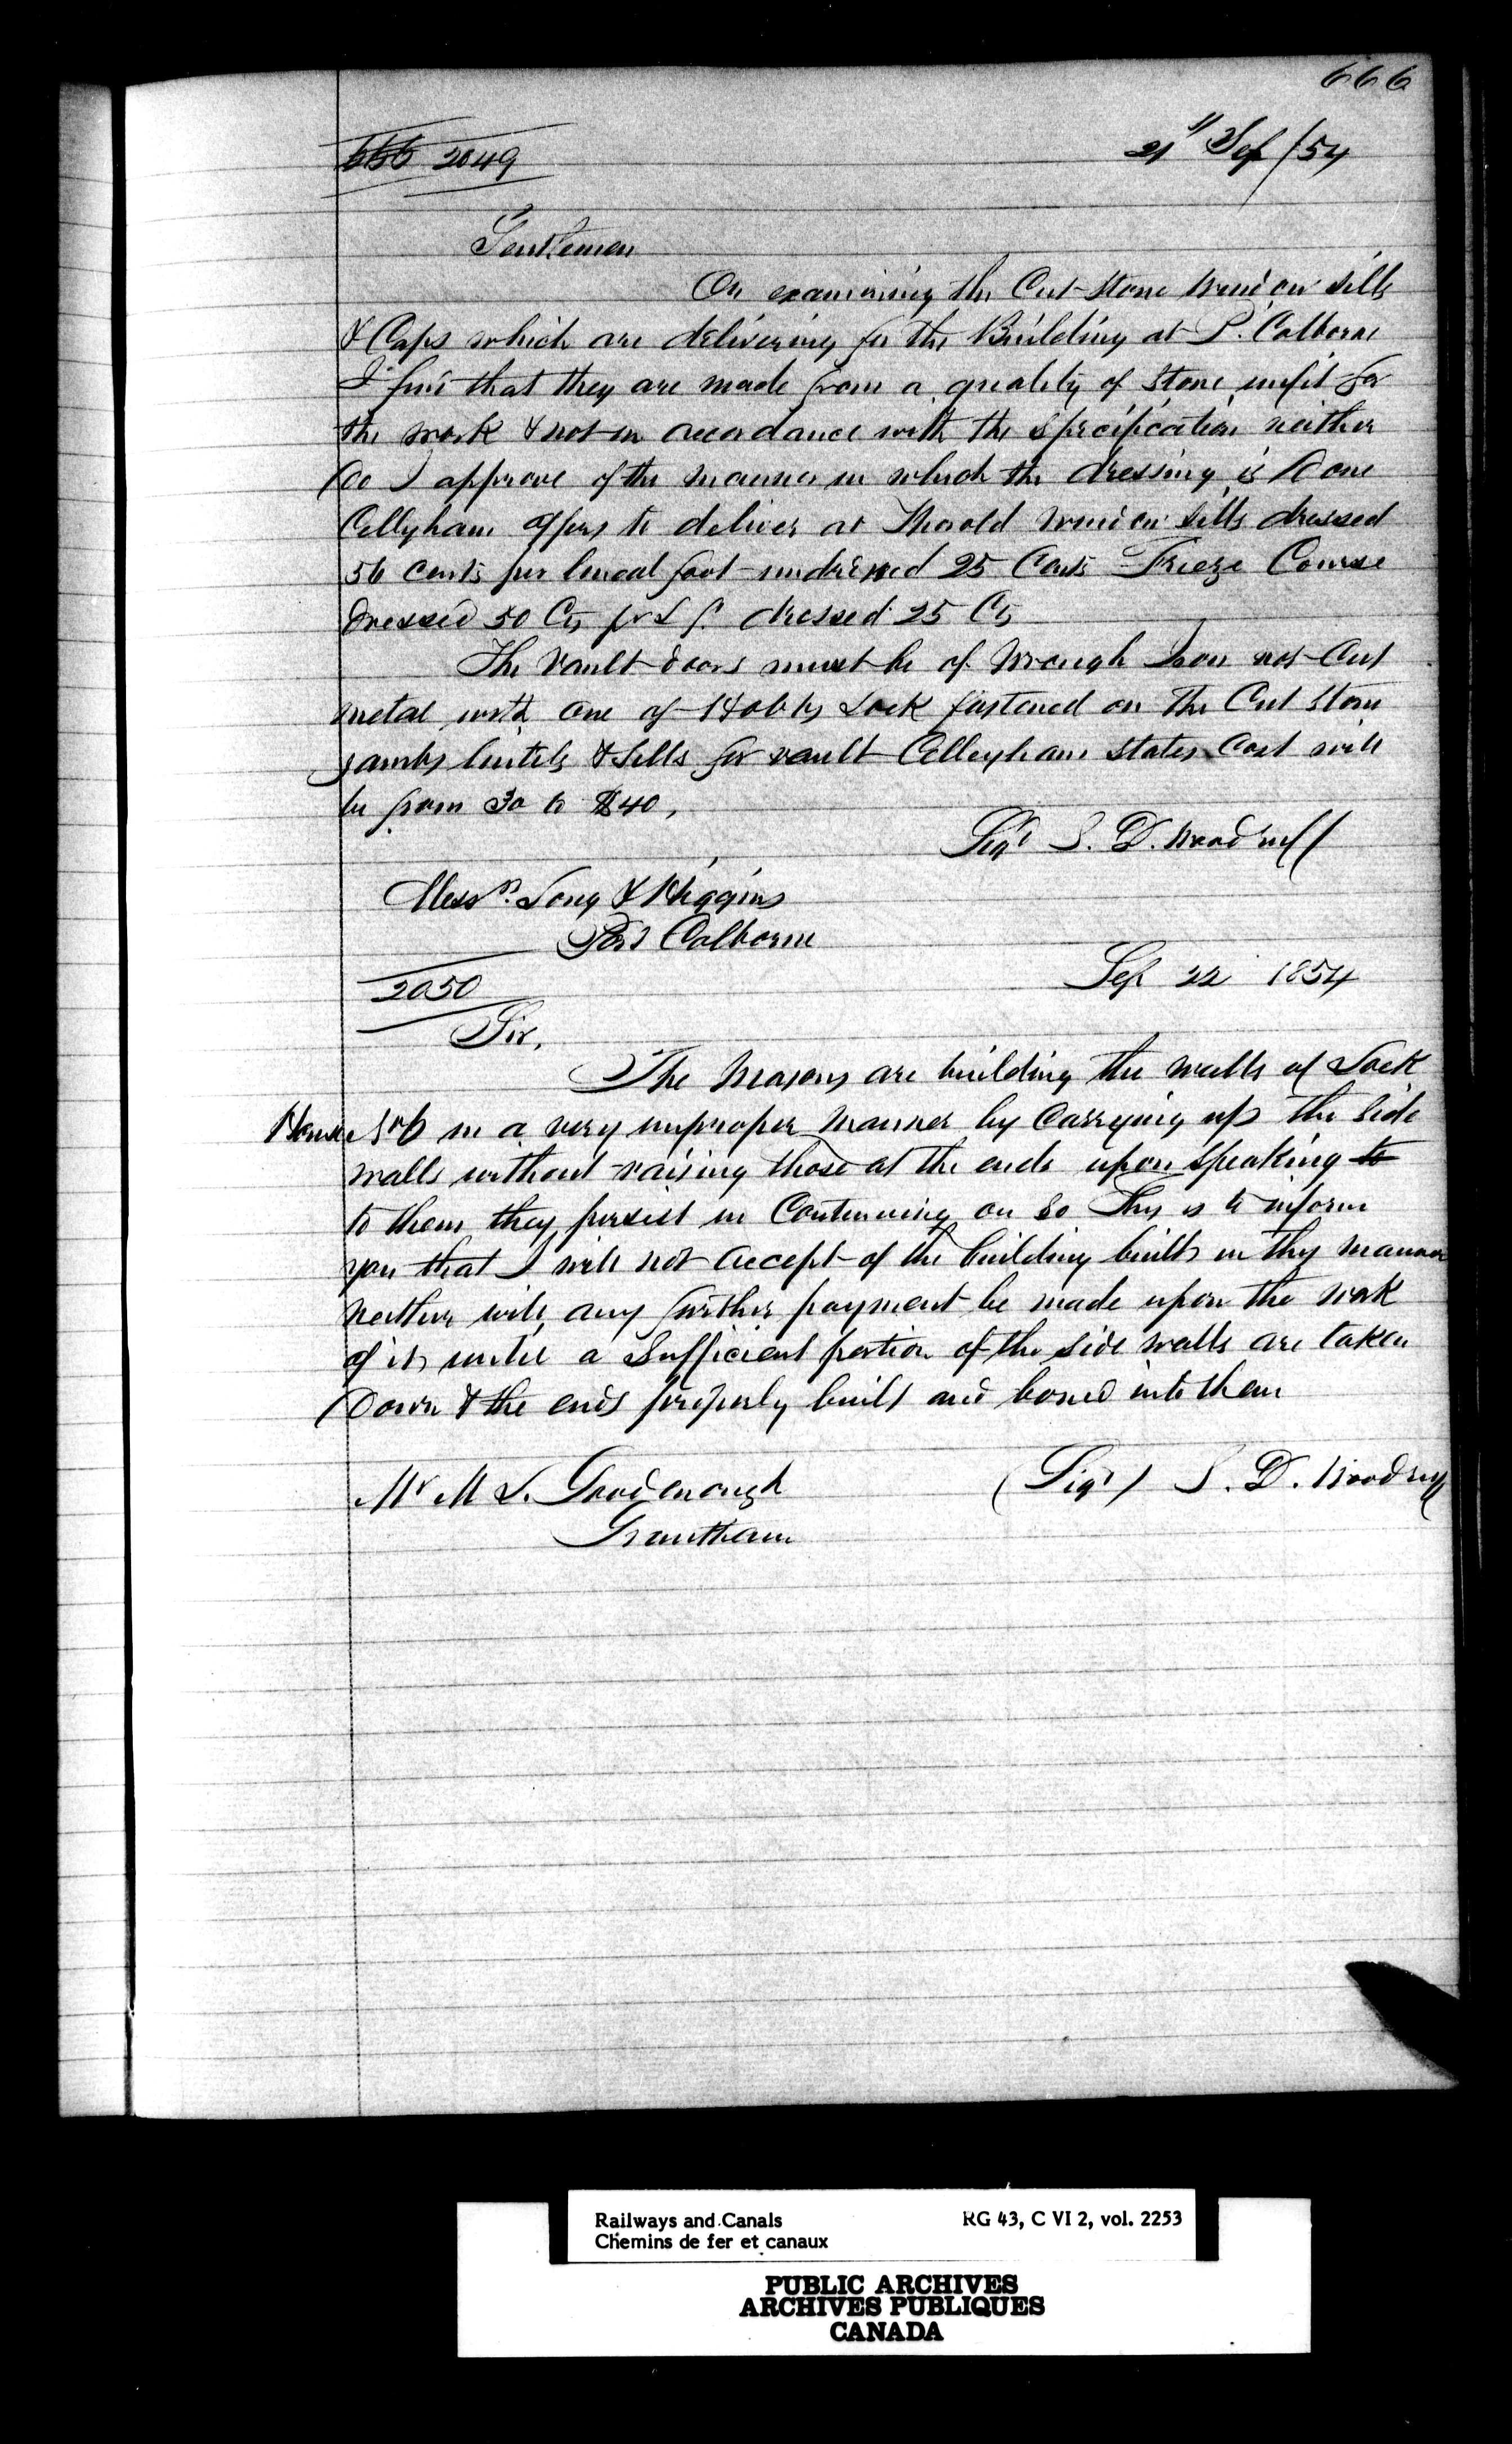 666
666 2049
21st Sep /54
Gentlemen
On examining the Cut Stone Window Sills
& Caps which are delivering for the Building at P. Colborne
I find that they are made from a quality of Stone unfit for
the work & not in accordance with the specification neither
do I approve of the manner in which the dressing is done
offers to deliver at Thorold Window Sills dressed
56 cents per lineal foot undressed 25 Cents Frieze Course
dressed 50 Cts pr L f. dressed 25 Cts
The Vault doors must be of Wrough Iron not Cast
metal with one of Hobbs Lock fastened on the Cut Stone
jambs lintels & Sills for vault states Cost will
be from 30 to $40,
Sigd S. D. Woodruff
Messrs. Long & Higgins
Port Colborne
2050
Sep 22 1854
Sir,
The Masons are building the walls of Lock
House No 6 in a very improper manner by Carrying up the Side
walls without raising those at the ends upon Speaking to
to them they persist in Continuing on So This is to inform
you that I will not accept of the building built in this manner
neither will any further payment be made upon the work
of it until a Sufficient portion of the side walls are taken
Down & the ends properly built and bond into them
Mr M L. Goodenough
Grantham
(Sigd) S. D. Woodruff
Railways and Canals
Chemins de fer et canaux
RG 43, C VI 2, vol. 2253
PUBLIC ARCHIVES
ARCHIVES PUBLIQUES
CANADA